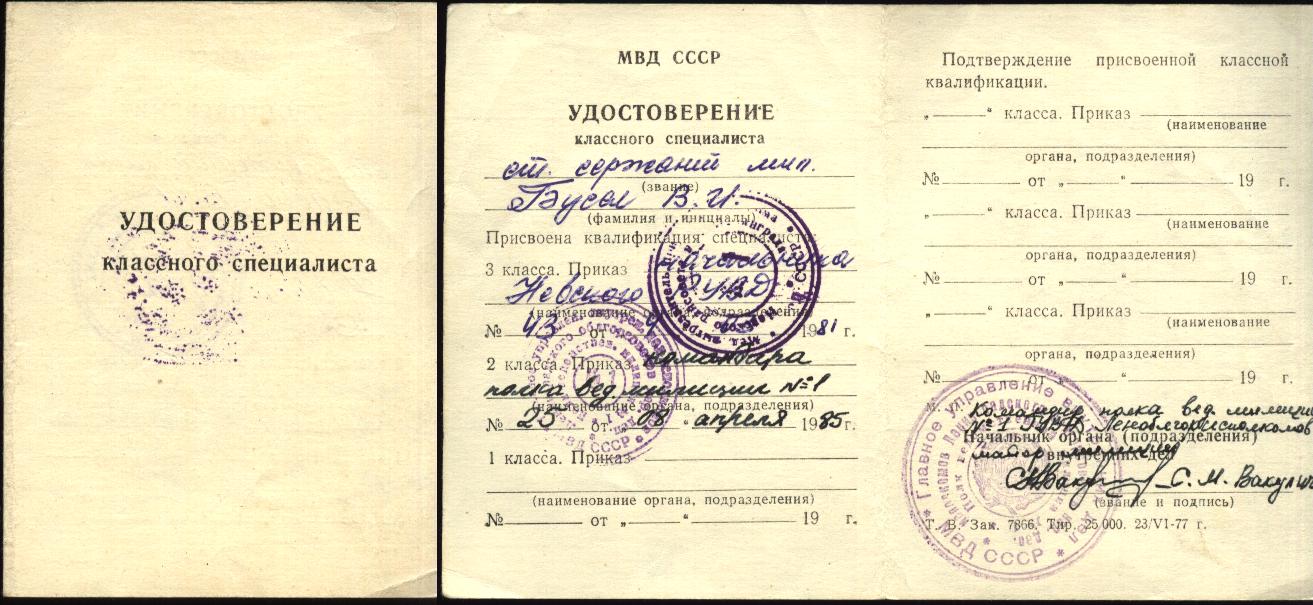 УДОСТОВЕРЕНИЕ
классного специалиста
МВД СССР
УДОСТОВЕРЕНИЕ
классного специалиста
ст. сержант мил.
(звание)
В. И.
(фамилия и инициалы)
Присвоена квалификация специалиста
3 класса. Приказ начальника
Невского РУВД
(наименование органа, подразделения)
№ 43 от 1981 г.
2 класса. Приказ командира
полка вед милиции №1
(наименование органа, подразделения)
№ 25 от „08“ апреля 1985 г.
1 класса. Приказ
(наименование органа, подразделения)
№ от „ “ 19 г.
Подтверждение присвоенной классной
квалификации.
„ “ класса. Приказ
(наименование
органа, подразделения)
№ от „ “ 19 г.
„ “ класса. Приказ
(наименование
органа, подразделения)
№ от „ “ 19 г.
„ “ класса. Приказ
(наименование
органа, подразделения)
№ от „ “ 19 г.
Командир полка вед. милиции
№1 ГУВД Леноблгорисполкомов
Начальник органа (подразделения)
внутренних дел
майор милиции
С. М.
(звание и подпись)
Т. В. Зак. 7866. Тир. 25 000. 23/VI-77 г.
Главное управление
МВД СССР